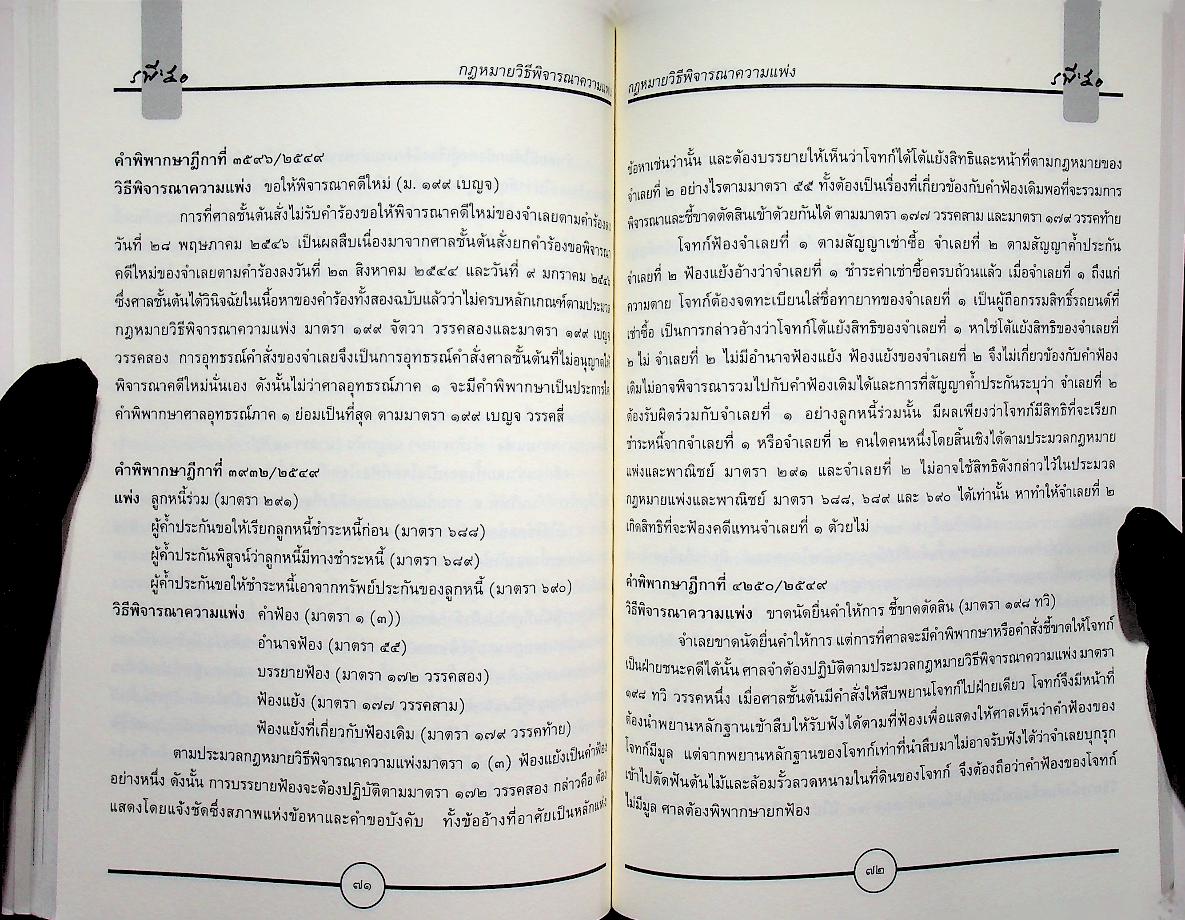 รพี'๕๐
กฎหมายวิธีพิจารณาความแพ่ง
คำพิพากษาฎีกาที่ ๓๕๙๖/๒๕๔๙
วิธีพิจารณาความแพ่ง ขอให้พิจารณาคดีใหม่ (ม. ๑๙๙ เบญจ)
การที่ศาลชั้นต้นสั่งไม่รับคำร้องขอให้พิจารณาคดีใหม่ของจำเลยตามคำร้องลง
วันที่ ๒๘ พฤษภาคม ๒๕๔๖ เป็นผลสืบเนื่องมาจากศาลชั้นต้นสั่งยกคำร้องขอพิจารณา
คดีใหม่ของจำเลยตามคำร้องลงวันที่ ๒๓ สิงหาคม ๒๕๔๔ และวันที่ ๙ มกราคม ๒๕๔๖
ซึ่งศาลชั้นต้นได้วินิจฉัยในเนื้อหาของคำร้องทั้งสองฉบับแล้วว่าไม่ครบหลักเกณฑ์ตามประมวล
กฎหมายวิธีพิจารณาความแพ่ง มาตรา ๑๙๙ จัตวา วรรคสองและมาตรา ๑๙๙ เบญจ
วรรคสอง การอุทธรณ์คำสั่งของจำเลยจึงเป็นการอุทธรณ์คำสั่งศาลชั้นต้นที่ไม่อนุญาตให้
พิจารณาคดีใหม่นั่นเอง ดังนั้นไม่ว่าศาลอุทธรณ์ภาค ๑ จะมีคำพิพากษาเป็นประการใด
คำพิพากษาศาลอุทธรณ์ภาค ๑ ย่อมเป็นที่สุด ตามมาตรา ๑๙๙ เบญจ วรรคสี่
คำพิพากษาฎีกาที่ ๓๙๓๒/๒๕๔๙
แพ่ง ลูกหนี้ร่วม (มาตรา ๒๙๑)
ผู้ค้ำประกันขอให้เรียกลูกหนี้ชำระหนี้ก่อน (มาตรา ๖๘๘)
ผู้ค้ำประกันพิสูจน์ว่าลูกหนี้มีทางชำระหนี้ (มาตรา ๖๘๙)
ผู้ค้ำประกันขอให้ชำระหนี้เอาจากทรัพย์ประกันของลูกหนี้ (มาตรา ๖๙๐)
วิธีพิจารณาความแพ่ง คำฟ้อง (มาตรา ๑ (๓))
อำนาจฟ้อง (มาตรา ๕๕)
บรรยายฟ้อง (มาตรา ๑๗๒ วรรคสอง)
ฟ้องแย้ง (มาตรา ๑๗๗ วรรคสาม)
ฟ้องแย้งที่เกี่ยวกับฟ้องเดิม (มาตรา ๑๗๙ วรรคท้าย)
ตามประมวลกฎหมายวิธีพิจารณาความแพ่งมาตรา ๑ (๓) ฟ้องแย้งเป็นคำฟ้อง
อย่างหนึ่ง ดังนั้น การบรรยายฟ้องจะต้องปฏิบัติตามมาตรา ๑๗๒ วรรคสอง กล่าวคือ ต้อง
แสดงโดยแจ้งชัดซึ่งสภาพแห่งข้อหาและคำขอบังคับ ทั้งข้ออ้างที่อาศัยเป็นหลักแห่ง
๗๑
กฎหมายวิธีพิจารณาความแพ่ง
รพี'๕๐
ข้อหาเช่นว่านั้น และต้องบรรยายให้เห็นว่าโจทก์ได้โต้แย้งสิทธิและหน้าที่ตามกฎหมายของ
จำเลยที่ ๒ อย่างไรตามมาตรา ๕๕ ทั้งต้องเป็นเรื่องที่เกี่ยวข้องกับคำฟ้องเดิมพอที่จะรวมการ
พิจารณาและชี้ขาดตัดสินเข้าด้วยกันได้ ตามมาตรา ๑๗๗ วรรคสาม และมาตรา ๑๗๙ วรรคท้าย
โจทก์ฟ้องจำเลยที่ ๑ ตามสัญญาเช่าซื้อ จำเลยที่ ๒ ตามสัญญาค้ำประกัน
จำเลยที่ ๒ ฟ้องแย้งอ้างว่าจำเลยที่ ๑ ชำระค่าเช่าซื้อครบถ้วนแล้ว เมื่อจำเลยที่ ๑ ถึงแก่
ความตาย โจทก์ต้องจดทะเบียนใส่ชื่อทายาทของจำเลยที่ ๑ เป็นผู้ถือกรรมสิทธิ์รถยนต์ที่
เช่าซื้อ เป็นการกล่าวอ้างว่าโจทก์โต้แย้งสิทธิของจำเลยที่ ๑ หาใช่โต้แย้งสิทธิของจำเลยที่
๒ ไม่ จำเลยที่ ๒ ไม่มีอำนาจฟ้องแย้ง ฟ้องแย้งของจำเลยที่ ๒ จึงไม่เกี่ยวข้องกับคำฟ้อง
เดิมไม่อาจพิจารณารวมไปกับคำฟ้องเดิมได้และการที่สัญญาค้ำประกันระบุว่า จำเลยที่ ๒
ต้องรับผิดร่วมกับจำเลยที่ ๑ อย่างลูกหนี้ร่วมนั้น มีผลเพียงว่าโจทก์มีสิทธิที่จะเรียก
ชำระหนี้จากจำเลยที่ ๑ หรือจำเลยที่ ๒ คนใดคนหนึ่งโดยสิ้นเชิงได้ตามประมวลกฎหมาย
แพ่งและพาณิชย์ มาตรา ๒๙๑ และจำเลยที่ ๒ ไม่อาจใช้สิทธิดังกล่าวไว้ในประมวล
กฎหมายแพ่งและพาณิชย์ มาตรา ๖๘๘, ๖๘๙ และ ๖๙๐ ได้เท่านั้น หาทำให้จำเลยที่ ๒
เกิดสิทธิที่จะฟ้องคดีแทนจำเลยที่ ๑ ด้วยไม่
คำพิพากษาฎีกาที่ ๔๒๕๐/๒๕๔๙
วิธีพิจารณาความแพ่ง ขาดนัดยื่นคำให้การ ชี้ขาดตัดสิน (มาตรา ๑๙๘ ทวิ)
จำเลยขาดนัดยื่นคำให้การ แต่การที่ศาลจะมีคำพิพากษาหรือคำสั่งชี้ขาดให้โจทก์
เป็นฝ่ายชนะคดีได้นั้น ศาลจำต้องปฏิบัติตามประมวลกฎหมายวิธีพิจารณาความแพ่ง มาตรา
๑๙๘ ทวิ วรรคหนึ่ง เมื่อศาลชั้นต้นมีคำสั่งให้สืบพยานโจทก์ไปฝ่ายเดียว โจทก์จึงมีหน้าที่
ต้องนำพยานหลักฐานเข้าสืบให้รับฟังได้ตามที่ฟ้องเพื่อแสดงให้ศาลเห็นว่าคำฟ้องของ
โจทก์มีมูล แต่จากพยานหลักฐานของโจทก์เท่าที่นำสืบมาไม่อาจรับฟังได้ว่าจำเลยบุกรุก
เข้าไปตัดฟันต้นไม้และล้อมรั้วลวดหนามในที่ดินของโจทก์ จึงต้องถือว่าคำฟ้องของโจทก์
ไม่มีมูล ศาลต้องพิพากษายกฟ้อง
๗๒